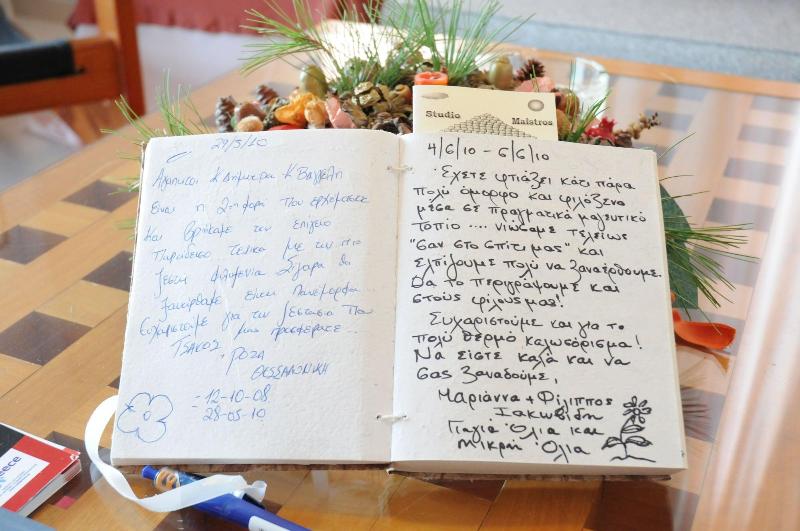 Studio Maistros
29/5/10
Αγαπητοί Κ Δήμητρα Κ Βαγγέλη
Είναι η 2η φορά που ερχόμαστε
και βρήκαμε τον επίγειο
Παράδεισο τελικά με την πιο
ζεστή φιλοξενία Σίγουρα θα
ξανάρθουμε είναι Πανέμορφα...
Ευχαριστούμε για την ζεστασιά που
μας προσφέρατε...
ΤΣΑΚΟΣ
ΡΟΖΑ
ΘΕΣΣΑΛΟΝΙΚΗ
= 12-10-08
= 28-05-10
4/6/10 - 6/6/10
Έχετε φτιάξει κάτι πάρα
πολύ όμορφο και φιλόξενο
μέσα σε πραγματικά μαγευτικό
τοπίο .... νιώσαμε τελείως
"σαν στο σπίτι μας" και
ελπίζουμε πολύ να ξαναέρθουμε.
Θα το περιγράψουμε και
στους φίλους μας!
Ευχαριστούμε και για το
πολύ θερμό καλωσόρισμα!
Να είστε καλά και να
σας ξαναδούμε,
Μαριάννα + Φίλιππος
Ιακωβίδη
Γιαγιά Όλια και
μικρή Όλια
eece